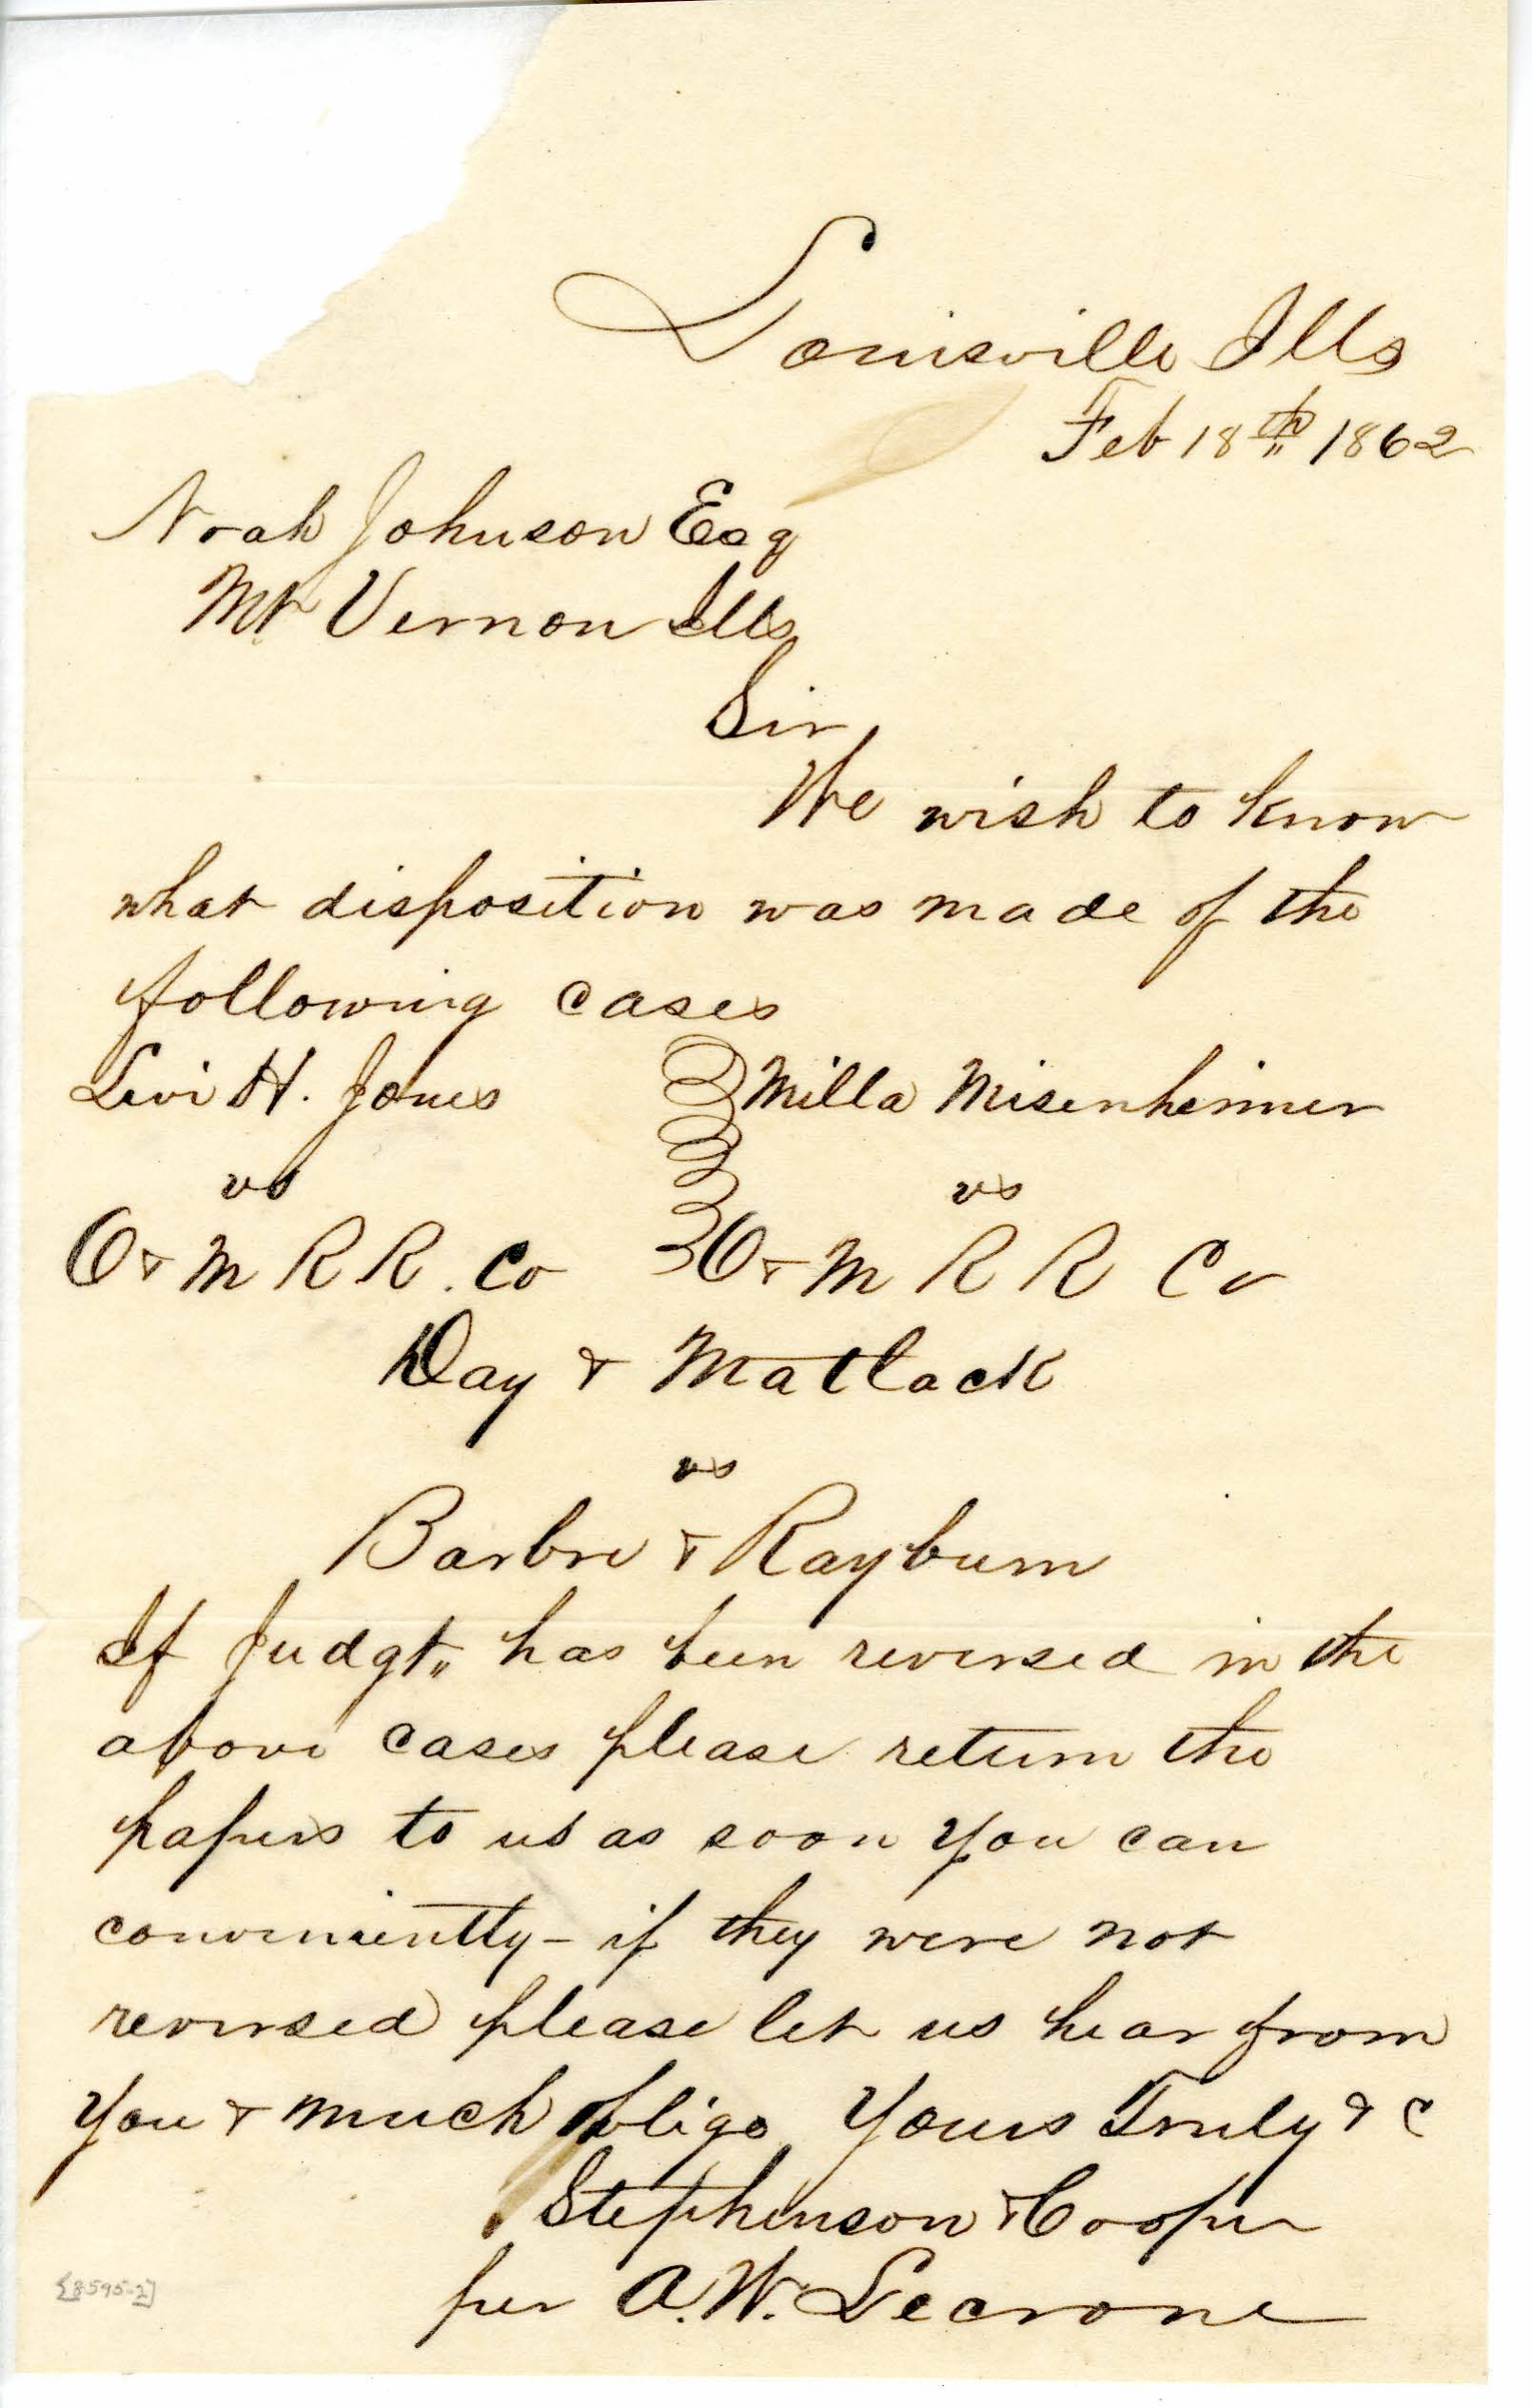 Louisville Ills
Feb 18th 1862
Noah Johnson Esq
Mt Vernon Ills
Sir
We wish to know
what disposition was made of the
following cases
Levi H. Jones Milla Misenheimer
vs vs
O & M R R. Co O & M R R Co
Day & Matlack
vs
Barbre & Rayburn
If Judgt" has been reversed in the
above cases please return the
papers to us as soon you can
conveniently - if they were not
reversed please let us hear from
you & much oblige Yours Truly & c
Stephenson & Cooper
per A. W. Lecrone
[8595-2]